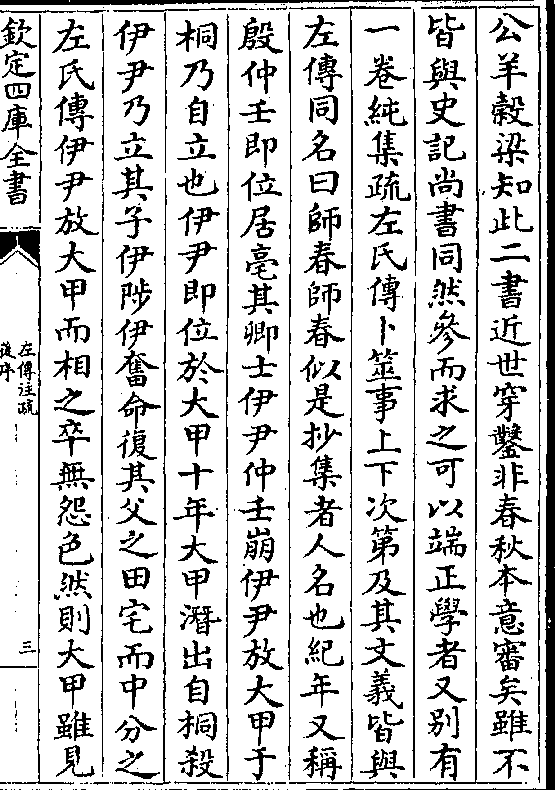 公羊穀梁知此二書近世穿鑿非春秋本意審矣雖不
皆與史記尚書同然參而求之可以端正學者又別有
一卷純集疏左氏傳卜筮事上下次第及其文義皆與
左傳同名曰師春師春似是抄集者人名也紀年又稱
殷仲壬即位居亳其卿士伊尹仲壬崩伊尹放大甲于
桐乃自立也伊尹即位於大甲十年大甲潛出自桐殺
伊尹乃立其子伊陟伊奮命復其父之田宅而中分之
左氏傳伊尹放大甲而相之卒無怨色然則大甲雖見
欽定四庫全書
左傳注疏
後序
三